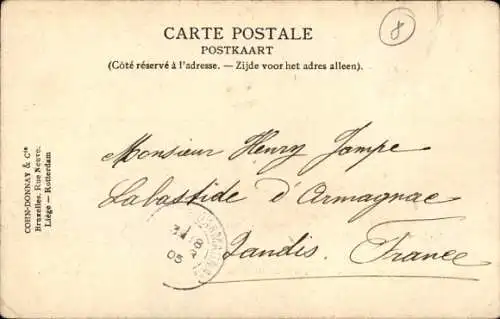 CARTE POSTALE
POSTKAART
(Côté réservé à l'adresse. — Zijde voor het adres alleen).
8
COHN-DONNAY & Cie
Bruxelles, Rue Neuve.
Liège — Rotterdam
Monsieur Henry Jampe
Labastide d'Armagnac
Landis. France
05